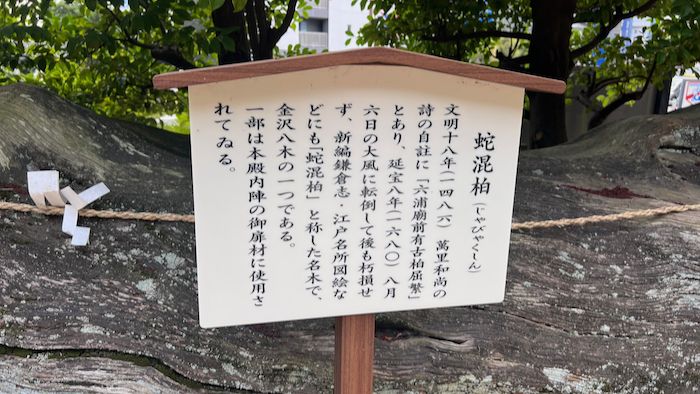 蛇混柏（じゃびゃくしん）
文明十八年（一四八六）　萬里和尚の
詩の自註に「六浦廟前有古柏屈繁」
とあり、延宝八年（一六八〇）八月
六日の大風に転倒して後も朽損せ
ず、新編鎌倉志・江戸名所図絵な
どにも「蛇混柏」と称した名木で、
金沢八木の一つである。
一部は本殿内陣の御扉材に使用さ
れてゐる。